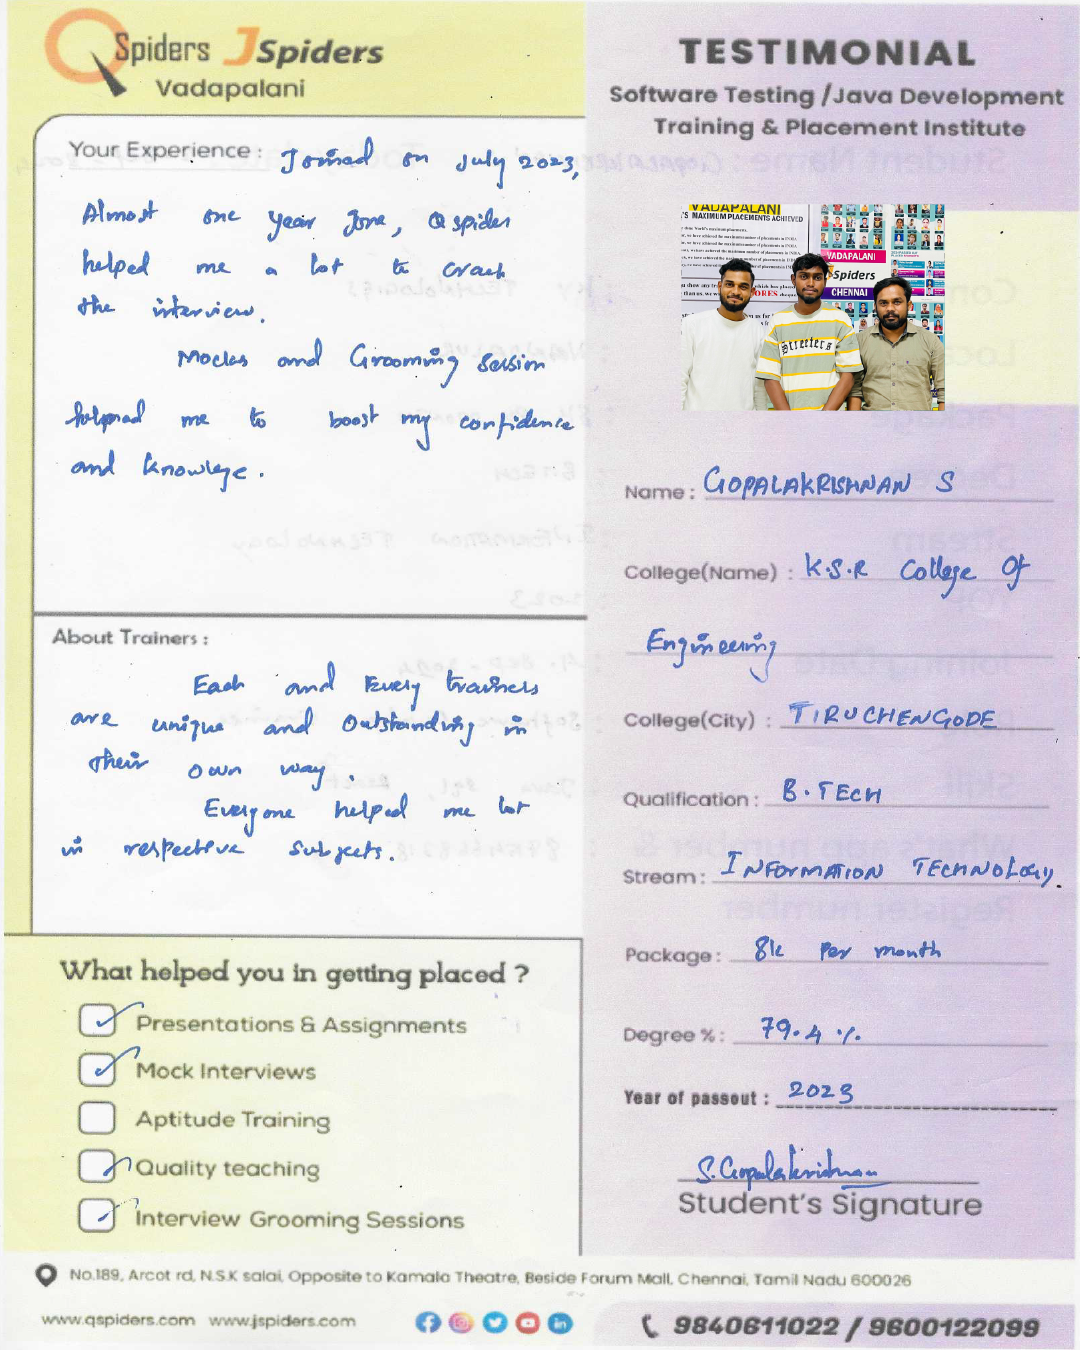 QSpiders JSpiders
Vadapalani
Your Experience : Joined on July 2023,
Almost one year gone, Qspider
helped me a lot to crack
the interview.
Mocks and Grooming Session
helped me to boost my confidence
and knowlege.
About Trainers :
Each and Every trainers
are unique and Outstanding in
their own way.
Everyone helped me lot
in respective subjects.
What helped you in getting placed ?
Presentations & Assignments
Mock Interviews
Aptitude Training
Quality teaching
Interview Grooming Sessions
TESTIMONIAL
Software Testing /Java Development
Training & Placement Institute
VADAPALANI
'S MAXIMUM PLACEMENTS ACHIEVED
VADAPALANI
Spiders
CHENNAI
Streeters
Name : GOPALAKRISHNAN S
College(Name) : K.S.R College Of
Engineering
College(City) : TIRUCHENGODE
Qualification : B.TECH
Stream : INFORMATION TECHNOLOGY.
Package : 8k Per month
Degree % : 79.4 %
Year of passout : 2023
S.Gopalakrishnan
Student's Signature
No.189, Arcot rd, N.S.K salai, Opposite to Kamala Theatre, Beside Forum Mall, Chennai, Tamil Nadu 600026
www.qspiders.com www.jspiders.com
9840611022 / 9600122099